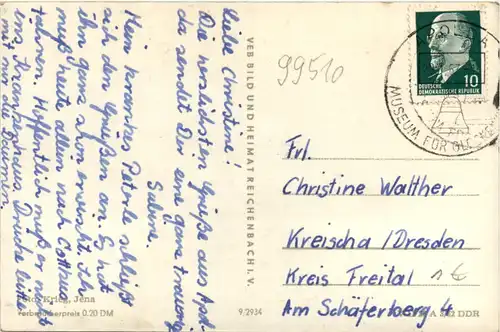 Liebe Christine!
Die herzlichsten Grüße aus
da sendet Dir eine ganz traurige
Sabine.
Mein krankes Peterle schließt
sich den Grüßen an. Es hat
ihn ganz schön erwischt. Ich
muß heute allein nach Cottbus
fahren. Hoffentlich muß er nicht
ins Krankenhaus. Drücke bitte
mit mir die Daumen.
Foto: Krieg, Jena
Verbraucherpreis 0.20 DM
VEB BILD UND HEIMAT REICHENBACH I. V.
9.2934
99510
DEUTSCHE
DEMOKRATISCHE REPUBLIK
10
MUSEUM FÜR
Frl.
Christine Walther
Kreischa/Dresden
Kreis Freital
1€
Am Schäferberg 4
DDR